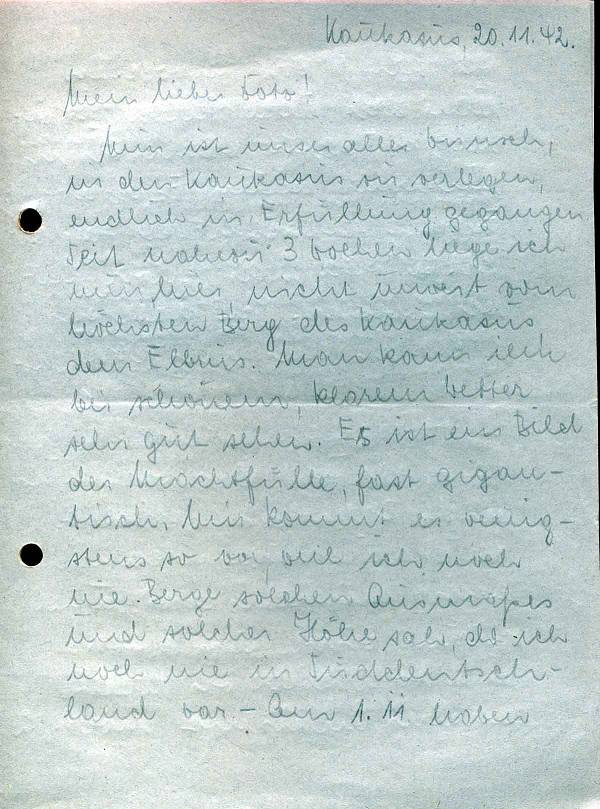 Kaukasus, 20.11.42.
Mein lieber Toto!
Nun ist unser aller Wunsch,
in den Kaukasus zu verlegen,
endlich in Erfüllung gegangen.
Seit nahezu 3 Wochen liege ich
nun hier, nicht unweit vom
höchsten Berg des Kaukasus
dem Elbrus. Man kann ich
bei schönem, klarem Wetter
sehr gut sehen. Es ist ein Bild
der Machtfülle, fast gigan-
tisch. Mir kommt es wenig-
stens so vor, weil ich noch
nie Berge solchen Ausmaßes
und solcher Höhe sah, da ich
noch nie in Süddeutsch-
land war. – Am 1.11. haben